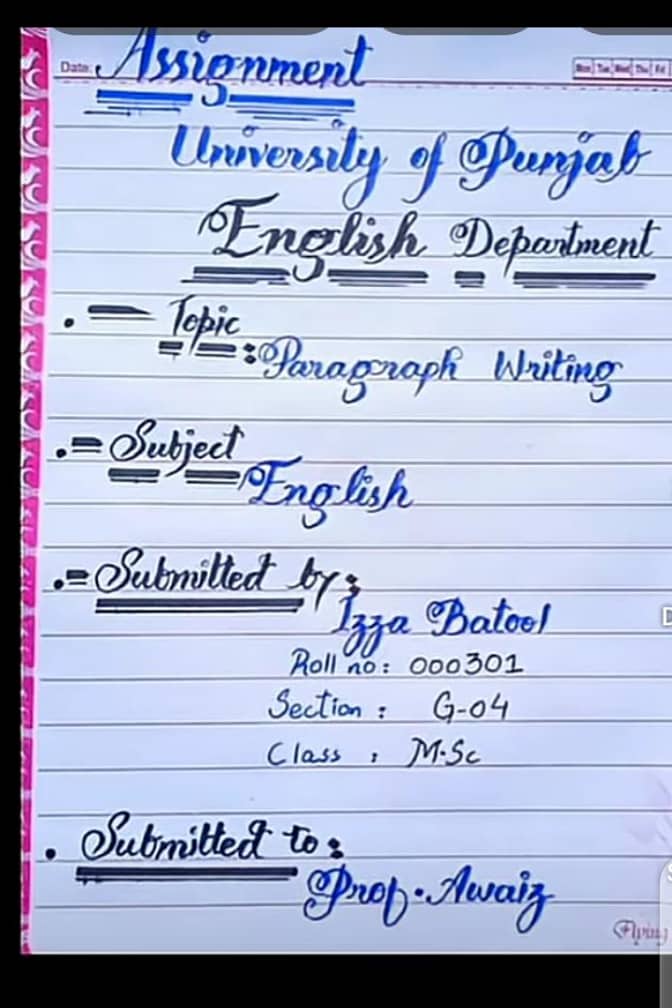 Date:
Assignment
Mon Tue Wed Thu Fri
University of Punjab
English Department
Topic
:Paragraph Writing
Subject
English
Submitted by:
Izza Batool
Roll no: 000301
Section : G-04
Class : M.Sc
Submitted to:
Prof. Awaiz